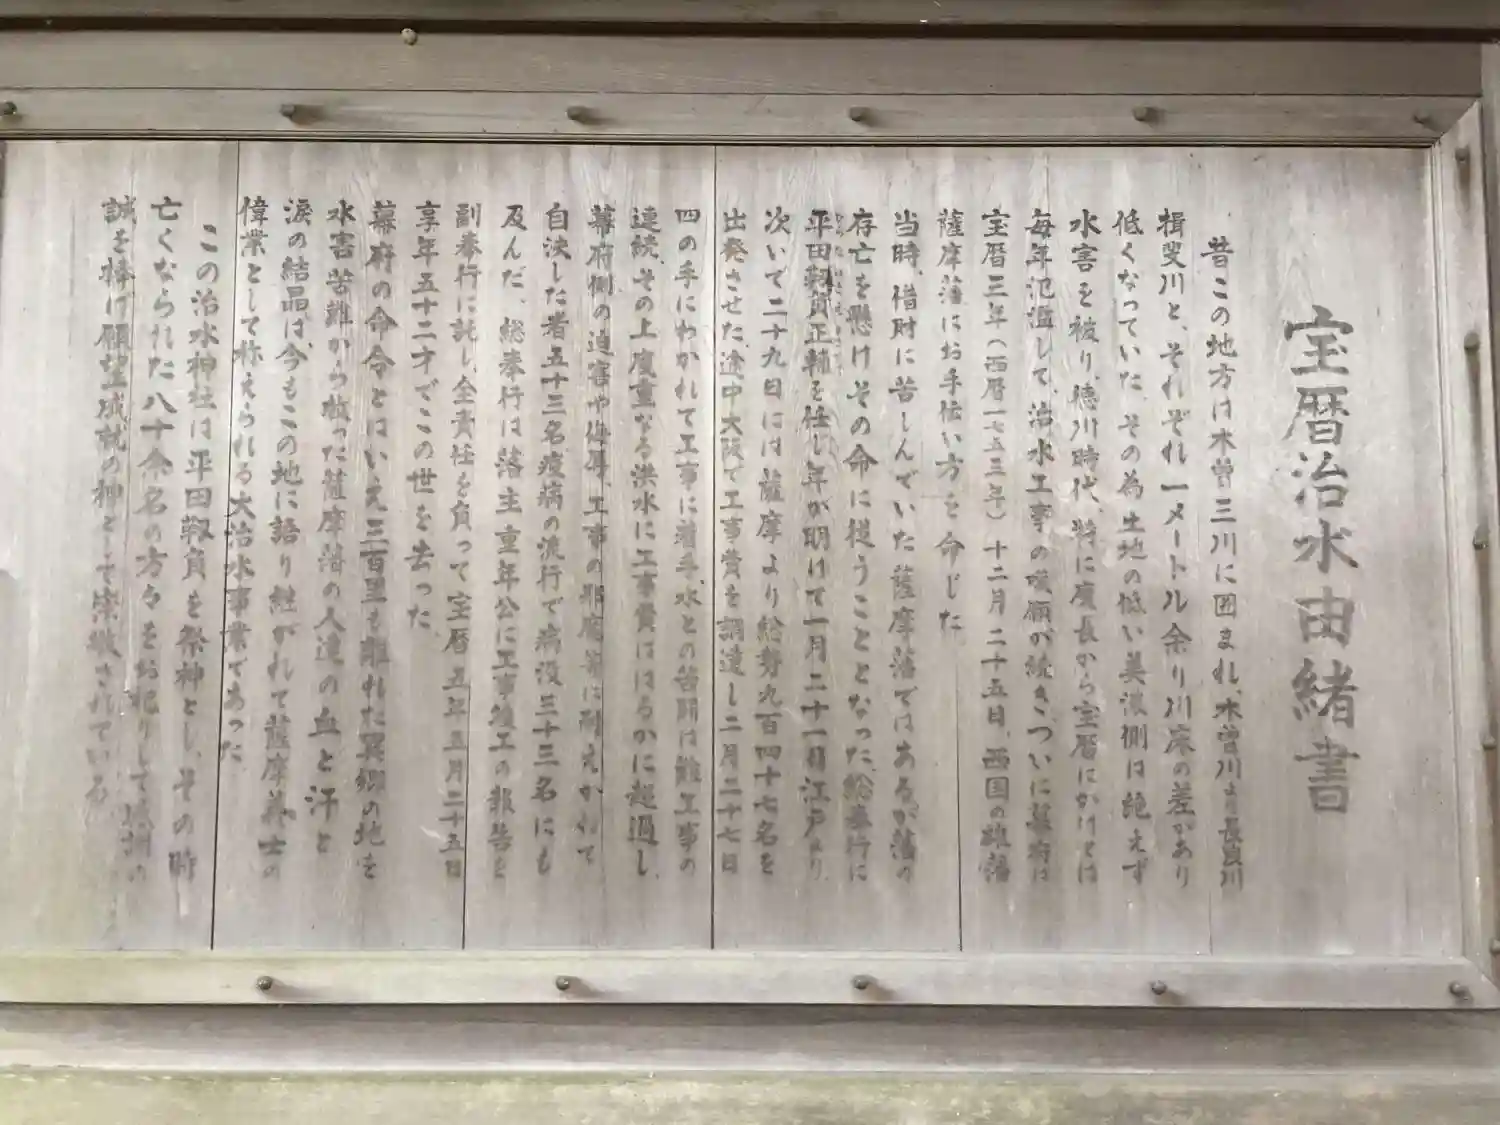 宝暦治水由緒書
昔この地方は木曽三川に囲まれ、木曽川より長良川
揖斐川と、それぞれ一メートル余り川床の差があり
低くなっていた。その為土地の低い美濃側は絶えず
水害を被り、徳川時代、特に慶長から宝暦にかけては
毎年氾濫して、治水工事の嘆願が続き、ついに幕府は
宝暦三年(西暦一七五三年)十二月二十五日、西国の雄藩
薩摩藩にお手伝い方を命じた。
当時、借財に苦しんでいた薩摩藩ではあるが藩の
存亡を懸けその命に従うこととなった。総奉行に
平田靱負正輔を任し年が明けて一月二十一日江戸より、
次いで二十九日には薩摩より総勢九百四十七名を
出発させた。途中大阪で工事費を調達し二月二十七日
四の手にわかれて工事に着手、水との苦闘は難工事の
連続、その上度重なる洪水に工事費ははるかに超過し、
幕府側の迫害や侮辱、工事の邪魔等に耐えかねて
自決した者五十三名、疫病の流行で病没三十三名にも
及んだ。総奉行は藩主重年公に工事竣工の報告を
副奉行に託し、全責任を負って宝暦五年五月二十五日
享年五十二才でこの世を去った。
幕府の命令とはいえ三百里も離れた異郷の地を
水害苦難から救った薩摩藩の人達の血と汗と
涙の結晶は、今もこの地に語り継がれて薩摩義士の
偉業として称えられる大治水事業であった。
この治水神社は平田靱負を祭神とし、その時
亡くなられた八十余名の方々をお祀りして
誠を捧げ願望成就の神として崇敬されている。